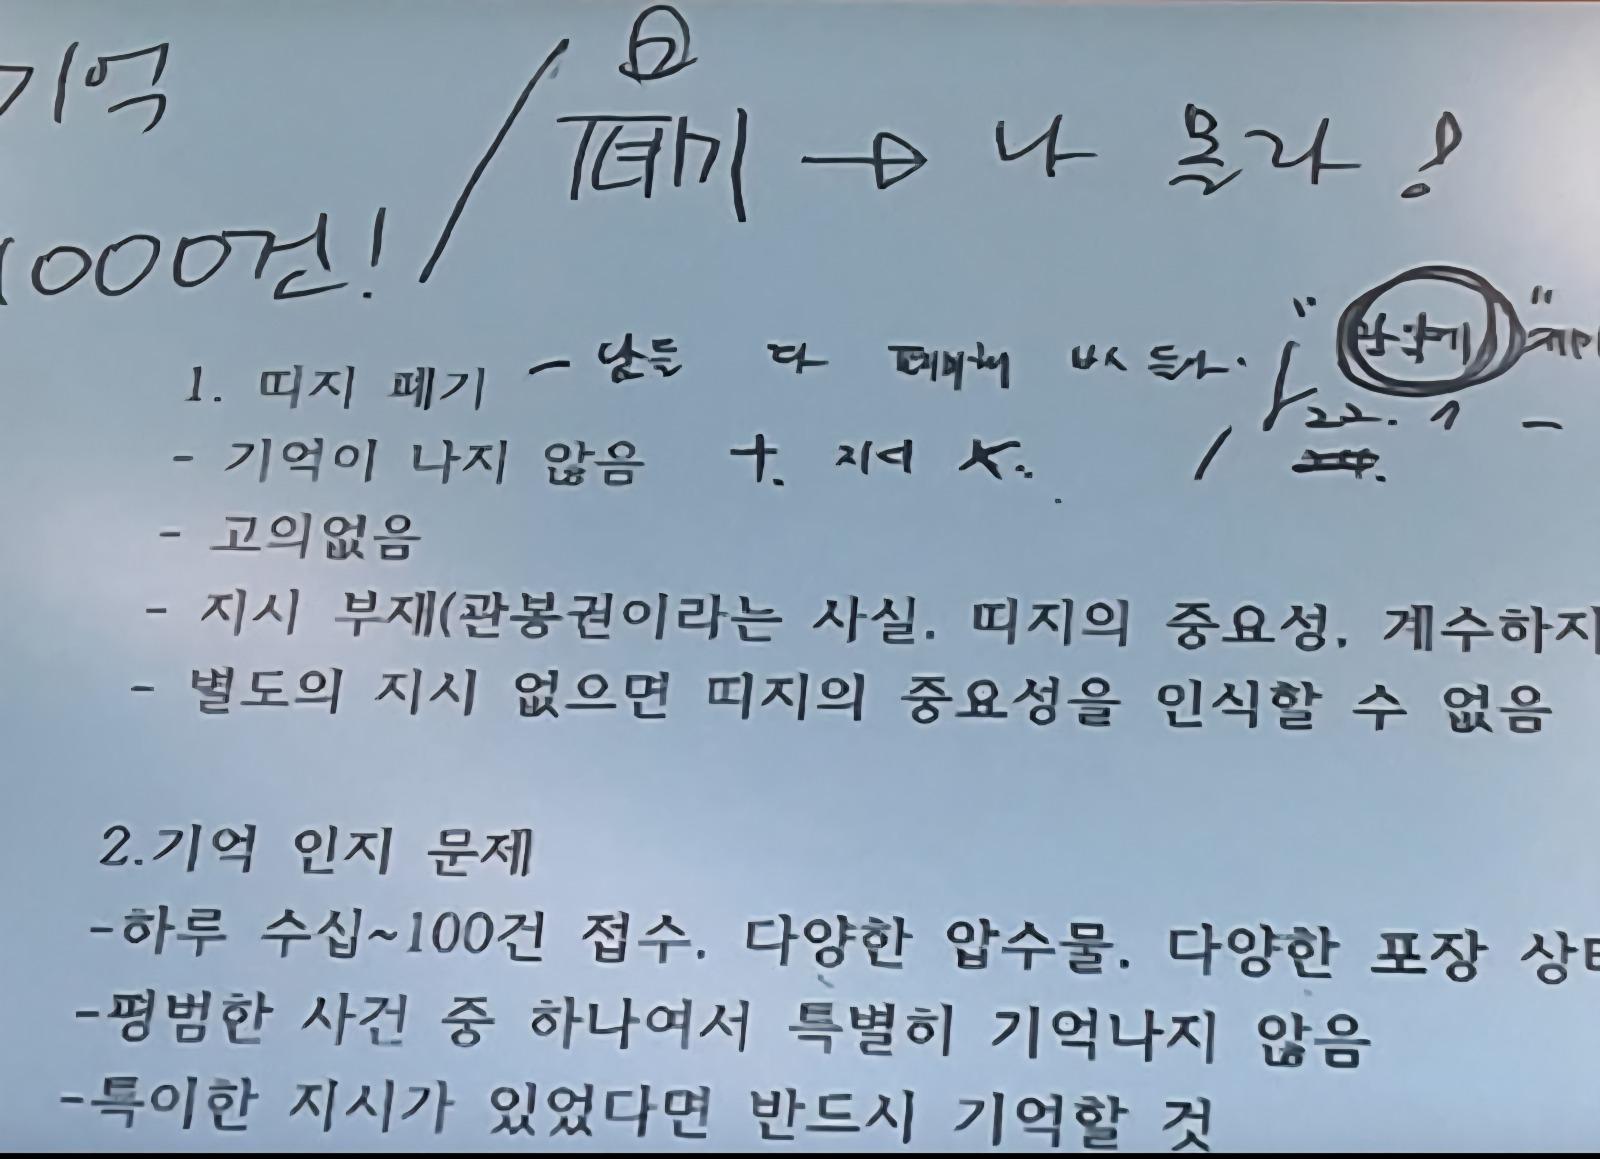 기억 / 폐기 → 나 몰라!
1000건!
1. 띠지 폐기 - 남들 다 폐기해 버 들라.
- 기억이 나지 않음 +. 지시 X. / 22. 1 -
- 고의없음
- 지시 부재(관봉권이라는 사실. 띠지의 중요성. 계수하지
- 별도의 지시 없으면 띠지의 중요성을 인식할 수 없음
2.기억 인지 문제
-하루 수십~100건 접수. 다양한 압수물. 다양한 포장 상태
-평범한 사건 중 하나여서 특별히 기억나지 않음
-특이한 지시가 있었다면 반드시 기억할 것